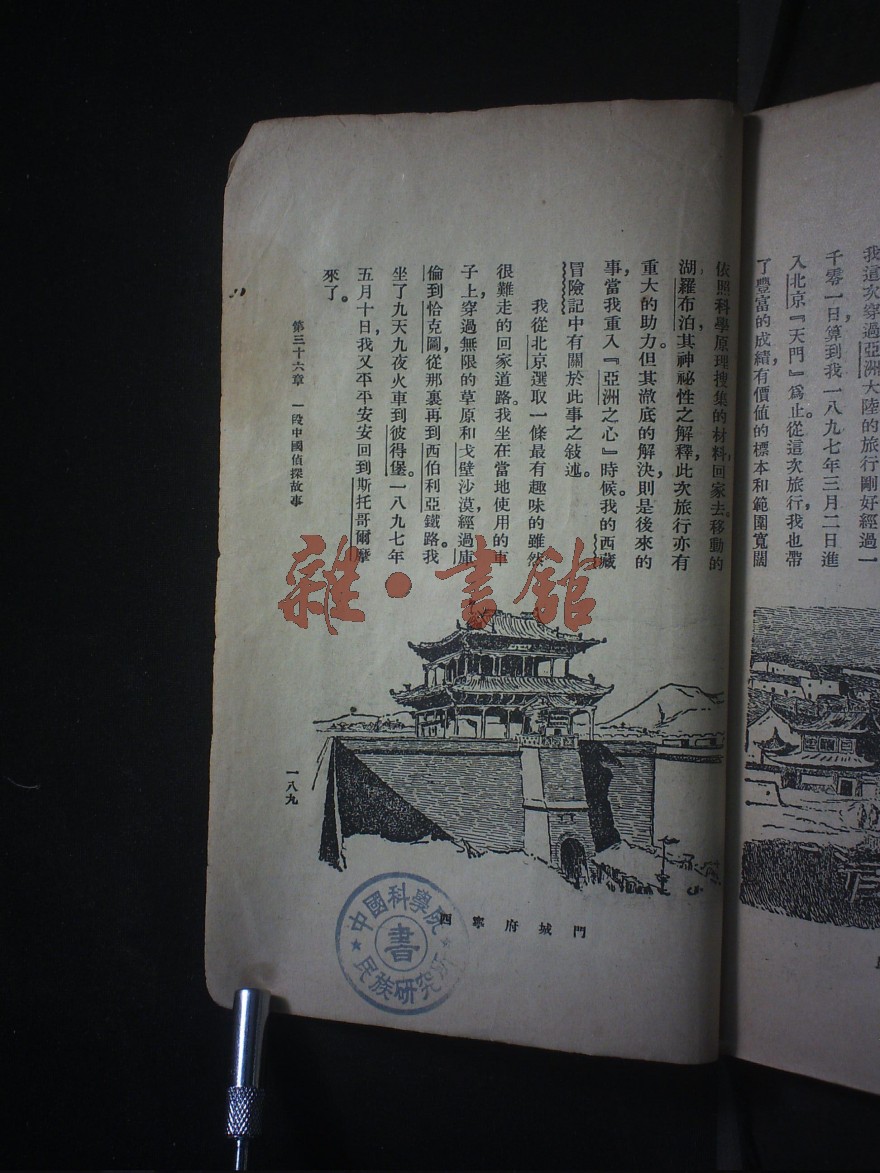 我這次穿過亞洲大陸的旅行剛好經過一
千零一日算到我一八九七年三月二日進
入北京『天門』爲止。從這次旅行,我也帶
了豐富的成績有價値的標本和範圍寬闊
依照科學原理搜集的材料回家去。移動的
湖,羅布泊,其神祕性之解釋,此次旅行亦有
重大的助力。但其澈底的解決則是後來的
事,當我重入『亞洲之心』時候。我的西藏
冒險記中有關於此事之敍述。
我從北京選取一條最有趣味的雖然
很難走的回家道路。我坐在當地使用的車
子上,穿過無限的草原和戈壁沙漠,經過庫
倫到恰克圖,從那裏再到西伯利亞鐵路。我
坐了九天九夜火車到彼得堡。一八九七年
五月十日,我又平平安安回到斯托哥爾摩
來了。
第三十六章 一段中國偵探故事
一八九
西寧府城門
中國科學院
民族研究所
書
雜·書館